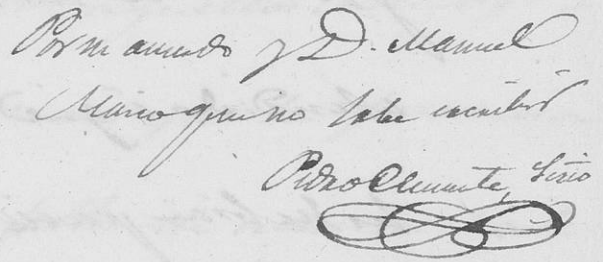 Por mandado y D. Manuel
Maroo que no sabe escribir
Pedro Clemente, Srio